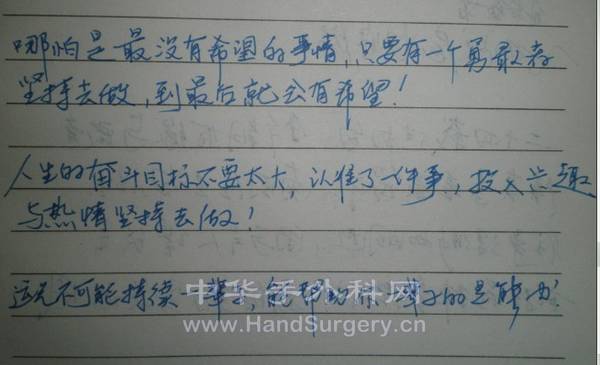 哪怕是最没有希望的事情,只要有一个勇敢者
坚持去做,到最后就会有希望!
人生的奋斗目标不要太大,认准了一件事,投入兴趣
与热情坚持去做!
运气不可能持续一辈子,能帮助你一辈子的是能力!
中华手外科网
www.HandSurgery.cn